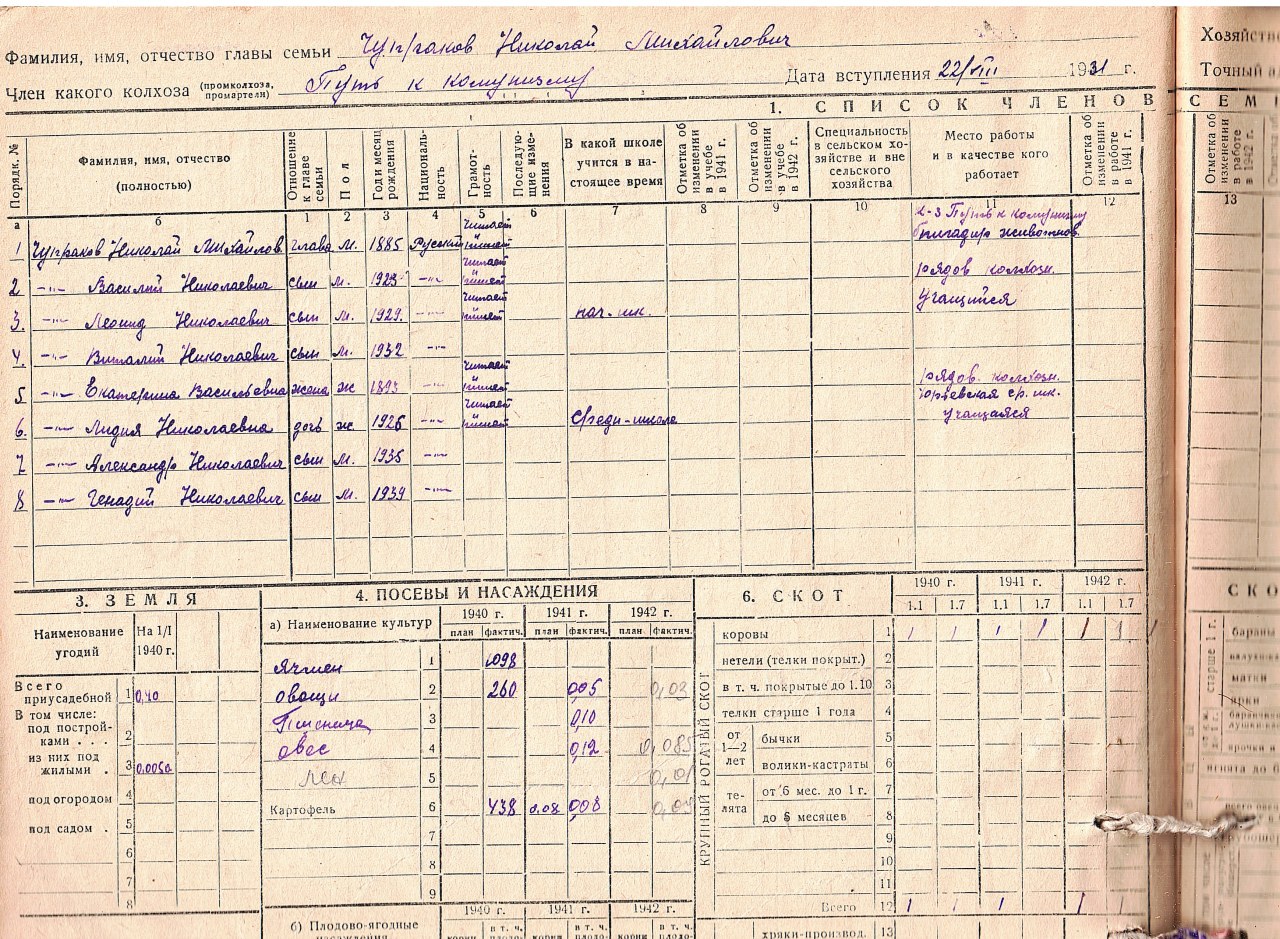 Фамилия, имя, отчество главы семьи Чуграков Николай Михайлович
Член какого колхоза (промколхоза, промартели) Путь к комунизму Дата вступления 22/VIII 1931 г.
1. СПИСОК ЧЛЕНОВ СЕМ
Порядк. № Фамилия, имя, отчество (полностью) Отношение к главе семьи Пол Год и месяц рождения Националь-ность Грамот-ность Последую-щие изме-нения В какой школе учится в на-стоящее время Отметка об изменении в учебе в 1941 г. Отметка об изменении в учебе в 1942 г. Специальность в сельском хо-зяйстве и вне сельского хозяйства Место работы и в качестве кого работает Отметка об изменении в работе в 1941 г. Отметка об изменении в работе в 1942 г.
а б 1 2 3 4 5 6 7 8 9 10 11 12 13
1 Чуграков Николай Михайлов. глава м. 1885 Русский читает пишет к-з Путь к комунизму бригадир животнов.
2 -"- Василий Николаевич сын м. 1923 -"- читает пишет рядов колхозн.
3. -"- Леонид Николаевич сын м. 1929. -"- читает пишет нач. шк. Учащийся
4. -"- Виталий Николаевич сын м. 1932 -"-
5 -"- Екатерина Васильевна жена ж 1893 -"- читает пишет рядов. колхозн.
6. -"- Лидия Николаевна дочь ж. 1926 -"- читает пишет Средн-школа Юрьевская ср. шк. учащаяся
7 -"- Александр Николаевич сын м. 1935 -"-
8 -"- Генадий Николаевич сын м. 1939 -"-
3. ЗЕМЛЯ
Наименование угодий На 1/I 1940 г.
Всего приусадебной 1 0,40
В том числе:
под построй-ками . . . 2
из них под жилыми . 3 0.005а
под огородом 4
под садом . 5
6
7
8
4. ПОСЕВЫ И НАСАЖДЕНИЯ
а) Наименование культур 1940 г. 1941 г. 1942 г.
план фактич. план фактич. план фактич.
Ячмен 1 1098
овощи 2 260 0,05 0,03
Пшеница 3 0,10
овес 4 0,12 0,085
лен 5 0,01
Картофель 6 438 0.08 0,08
7
8
9
1940 г. 1941 г. 1942 г.
б) Плодово-ягодные
6. СКОТ
1940 г. 1941 г. 1942 г.
1.1 1.7 1.1 1.7 1.1 1.7
КРУПНЫЙ РОГАТЫЙ СКОТ
коровы 1 1 1 1 1 1 1
нетели (телки покрыт.) 2
в т. ч. покрытые до 1.10 3
телки старше 1 года 4
от 1—2 лет
бычки 5
волики-кастраты 6
те-лята
от 6 мес. до 1 г. 7
до 6 месяцев 8
9
10
11
Всего 12 1 1 1 1 1
хряки-производ. 13
Хозяйств
Точный а
СКО
старше 1 г.
бараны
матки
ярки